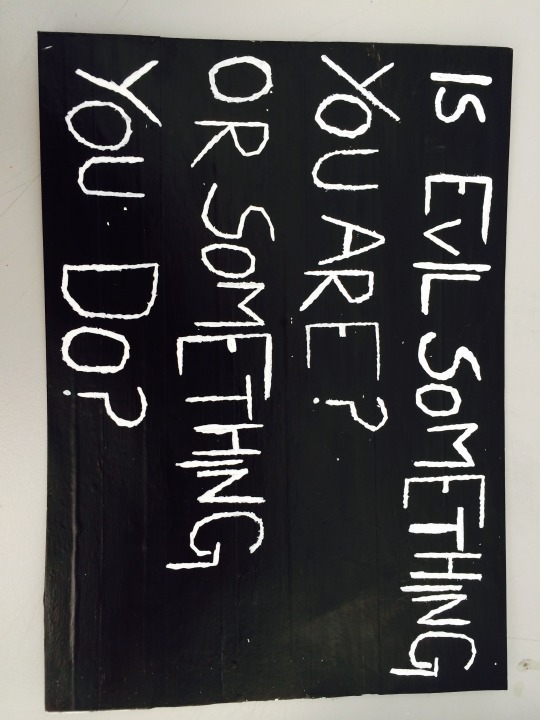 IS EVIL SOMETHING
YOU ARE?
OR SOMETHING
YOU DO?